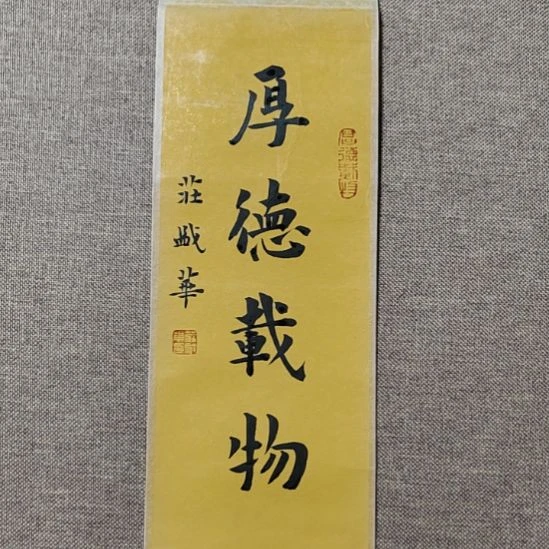 厚德載物
莊戝華